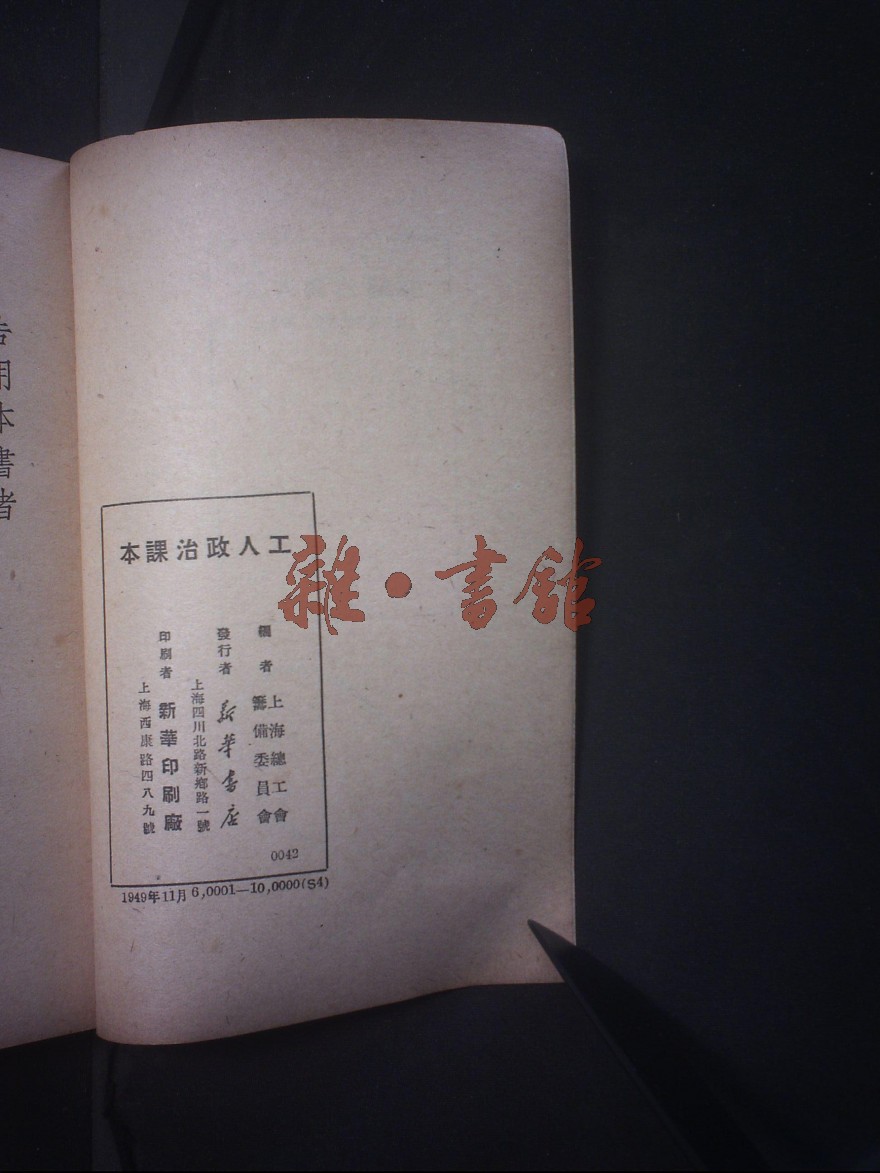 工人政治課本
編者 上海總工會
籌備委員會
發行者 新華書店
上海四川北路新鄉路一號
印刷者 新華印刷廠
上海西康路四八九號
0042
1949年11月 6,0001—10,0000(S4)
用本書者
雜·書館